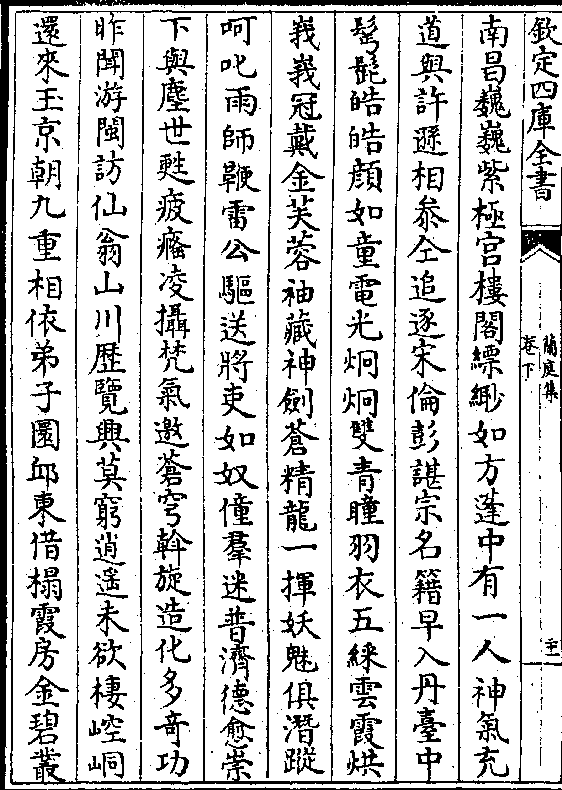 欽定四庫全書
蘭庭集
卷下
南昌巍巍紫極宮樓閣縹緲如方蓬中有一人神氣充
道與許遜相叅仝追逐宋倫彭諶宗名籍早入丹臺中
髩髭皓皓顔如童電光炯炯雙青瞳羽衣五綵雲霞烘
峩峩冠戴金芙蓉袖藏神劍蒼精龍一揮妖魅俱潛蹤
呵叱雨師鞭雷公驅送將吏如奴僮羣迷普濟德愈崇
下與塵世甦疲癃凌攝梵氣邀蒼穹斡旋造化多竒功
昨聞游閩訪仙翁山川歴覽興莫窮逍遥未欲棲崆峒
還來玉京朝九重相依弟子園邱東借榻霞房金碧叢